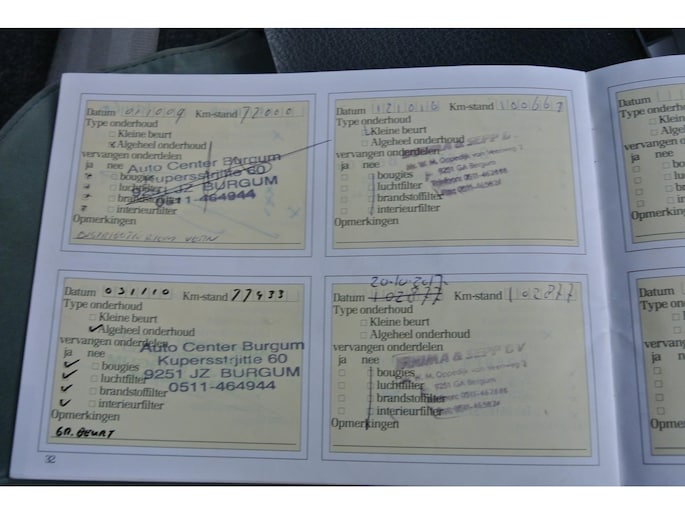 Datum 011009 Km-stand 77000
Type onderhoud
Kleine beurt
Algeheel onderhoud
vervangen onderdelen
ja nee
bougies
luchtfilter
brandstoffilter
interieurfilter
Opmerkingen
Auto Center Burgum
Kupersstrjitte 60
9251 JZ BURGUM
0511-464944
Datum 121016 Km-stand
Type onderhoud
Kleine beurt
Algeheel onderhoud
vervangen onderdelen
ja nee
bougies
luchtfilter
brandstoffilter
interieurfilter
Opmerkingen
& SEPP B.V.
9251 GA Bergum
Datum 031110 Km-stand 77433
Type onderhoud
Kleine beurt
Algeheel onderhoud
vervangen onderdelen
ja nee
bougies
luchtfilter
brandstoffilter
interieurfilter
Opmerkingen
GR. BEURT
Auto Center Burgum
Kupersstrjitte 60
9251 JZ BURGUM
0511-464944
20-10-2017
Datum 102877 Km-stand 102877
Type onderhoud
Kleine beurt
Algeheel onderhoud
vervangen onderdelen
ja nee
bougies
luchtfilter
brandstoffilter
interieurfilter
Opmerkingen
& SEPP B.V.
9251 GA Bergum
32
Datum
Type ond
vervange
ja
Opmerki
Datum
Type on
vervang
ja
Opmer